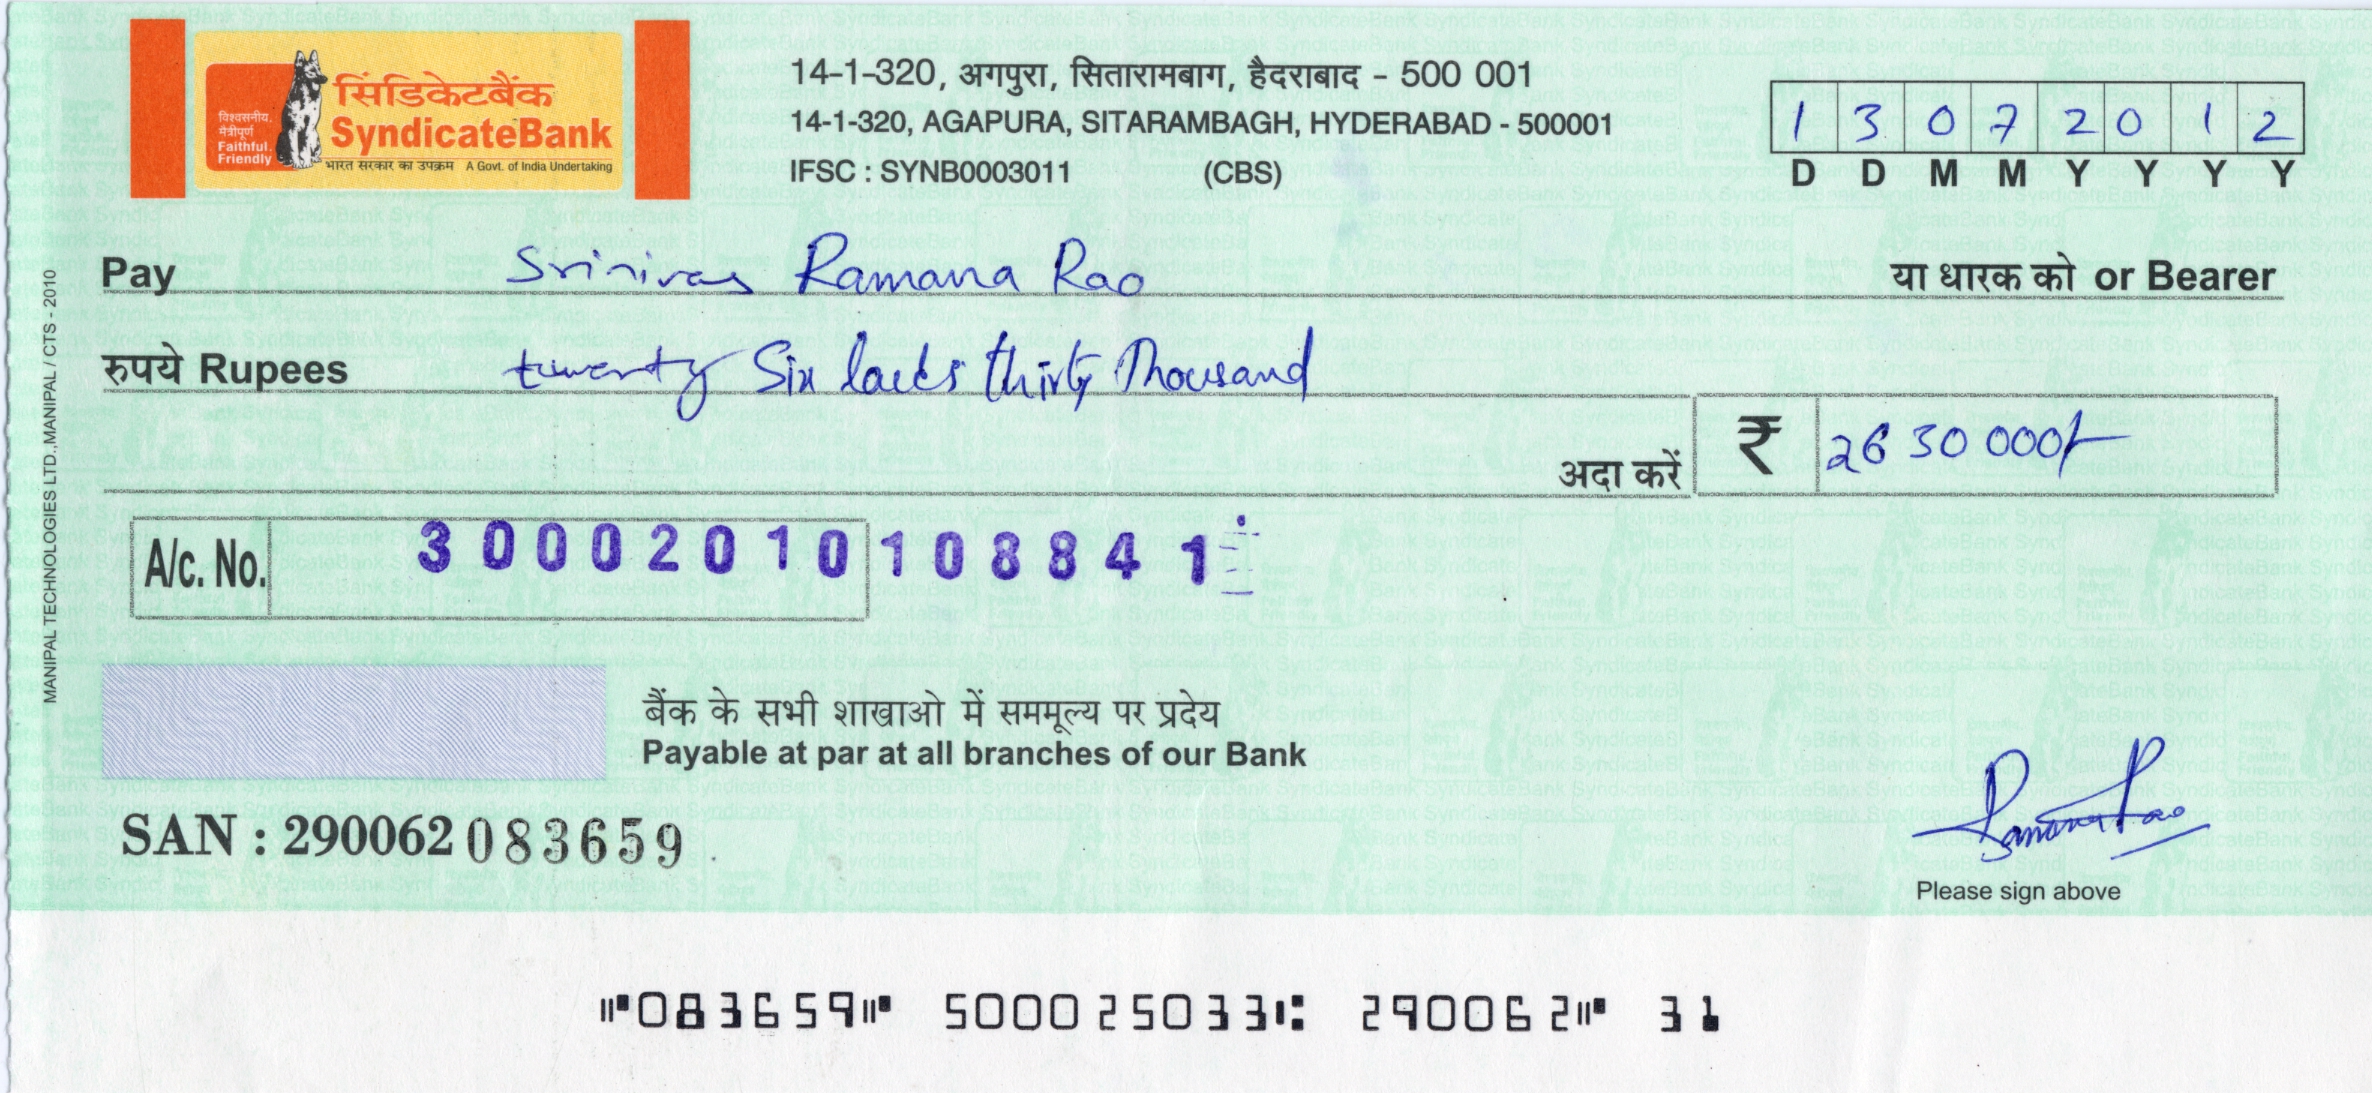 विश्वसनीय. मैत्रीपूर्ण
Faithful. Friendly
सिंडिकेटबैंक
SyndicateBank
भारत सरकार का उपक्रम A Govt. of India Undertaking
14-1-320, अगपुरा, सितारामबाग, हैदराबाद - 500 001
14-1-320, AGAPURA, SITARAMBAGH, HYDERABAD - 500001
IFSC : SYNB0003011 (CBS)
1 3 0 7 2 0 1 2
D D M M Y Y Y Y
Pay Srinivas Ramana Rao या धारक को or Bearer
रुपये Rupees twenty Six lacks thirty Thousand
अदा करें ₹ 26 30 000/-
A/c. No. 30002010108841
बैंक के सभी शाखाओ में सममूल्य पर प्रदेय
Payable at par at all branches of our Bank
SAN : 290062 083659
Ramana Rao
Please sign above
⑈083659⑈ 500025033⑆ 290062⑈ 31
MANIPAL TECHNOLOGIES LTD.,MANIPAL / CTS - 2010